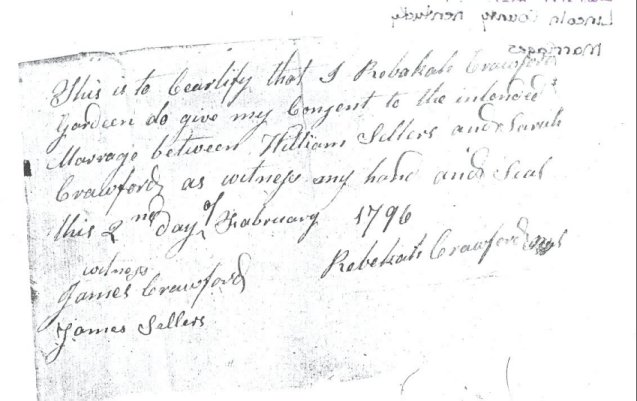 Lincoln County Kentucky
Marriages
This is to Ceartify that I Rebakah Crawford
Gardeen do give my Consent to the intended
Marrage between William Sellers and Sarah
Crawford as witness my hand and Seal
this 2nd day of Fabruary 1796
witness
James Crawford
Rebekah Crawford
James Sellers